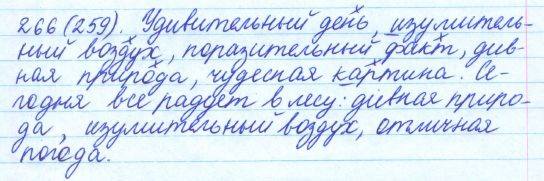 266 (259). Удивительный день, изумитель-
ный воздух, поразительный факт, див-
ная природа, чудесная картина. Се-
годня всё радует в лесу: дивная приро-
да, изумительный воздух, отличная
погода.